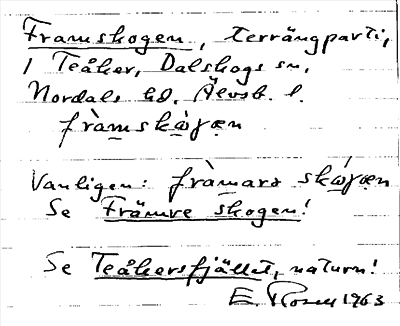 Framskogen, terrängparti,
i Teåker, Dalskogs sn,
Nordals hd, Älvsb. l.
fràmskὼgæn
Vanligen: fràmarə skώgæn
Se Främre skogen!
Se Teåkersfjället, naturn!
E. Rosell 1963